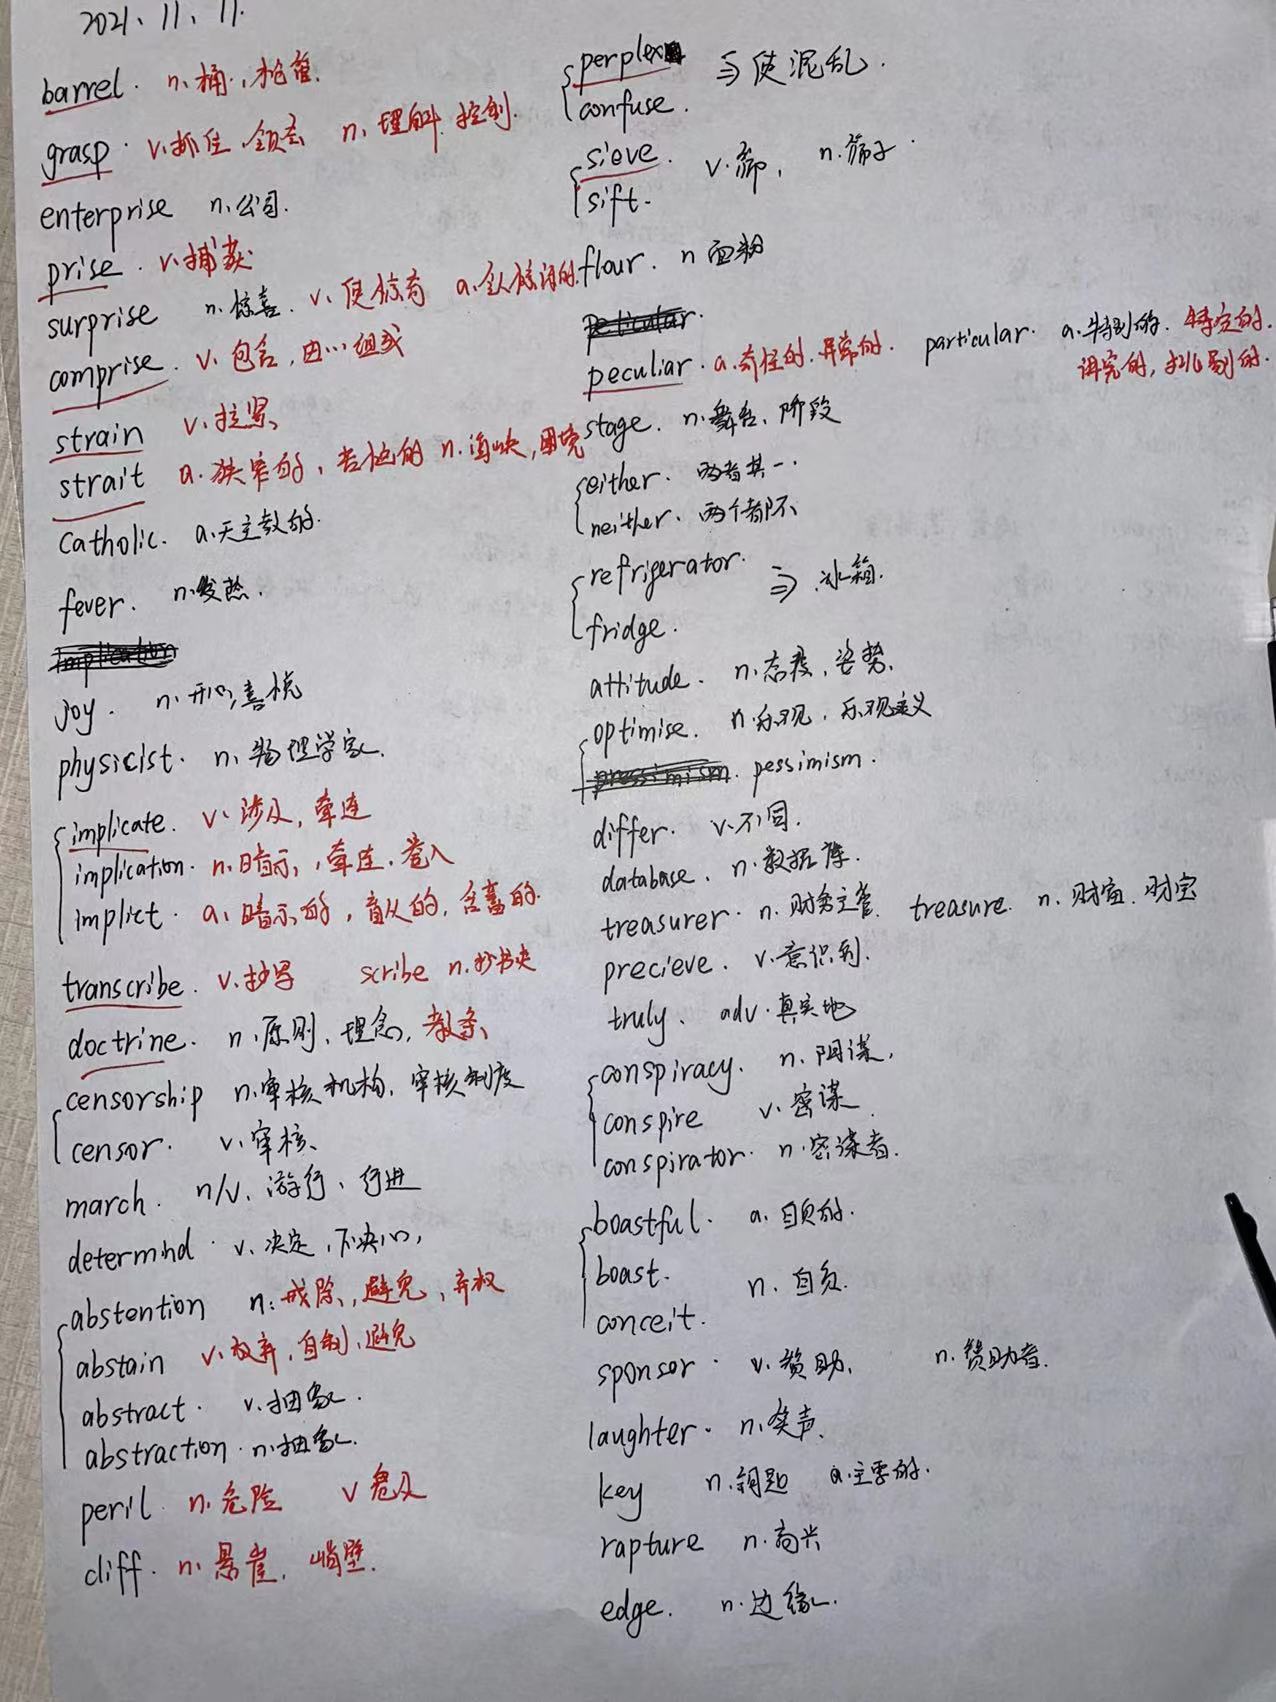 2021、11、11.
barrel. n、桶、枪管.
grasp. v、抓住、领会 n、理解 控制.
enterprise n、公司.
prise. v、捕获
surprise n、惊喜. v、使惊奇 a.令人惊讶的.
comprise. v、包含,由…组成
strain v、拉紧、
strait a.狭窄的,苦恼的 n.海峡,困境
catholic. a.天主教的.
fever. n.发热.
joy. n.开心,喜悦
physicist. n、物理学家.
implicate. v、涉及,牵连
implication. n.暗示,牵连.卷入
implict. a、暗示的,盲从的,含蓄的.
transcribe. v、抄写 scribe n.抄书吏
doctrine. n.原则、理念,教条、
censorship n.审核机构,审核制度
censor. v、审核、
march. n/v、游行、行进
determind. v、决定,下决心,
abstention n:戒除,避免,弃权
abstain v.放弃,自制,避免
abstract. v.抽象.
abstraction. n.抽象.
peril. n.危险 v危及
cliff. n、悬崖,峭壁.
perplex ⇒使混乱.
confuse.
sieve. v.筛, n.筛子.
sift.
flour. n 面粉
peculiar. a.奇怪的.异常的. particular. a.特别的.特定的.
讲究的,挑剔的.
stage. n.舞台、阶段
either. 两者其一.
neither. 两个都不
refrigerator. ⇒冰箱.
fridge.
attitude. n.态度,姿势.
optimise. n.乐观,乐观主义
pessimism.
differ. v.不同.
database. n.数据库.
treasurer. n.财务主管. treasure. n.财富.财宝
precieve. v.意识到.
truly. adv.真实地
conspiracy. n.阴谋.
conspire v.密谋.
conspirator. n.密谋者.
boastful. a.自负的.
boast. n.自负.
conceit.
sponsor. v.赞助. n.赞助者.
laughter. n.笑声.
key n.钥匙 a.主要的.
rapture n.高兴
edge. n.边缘.